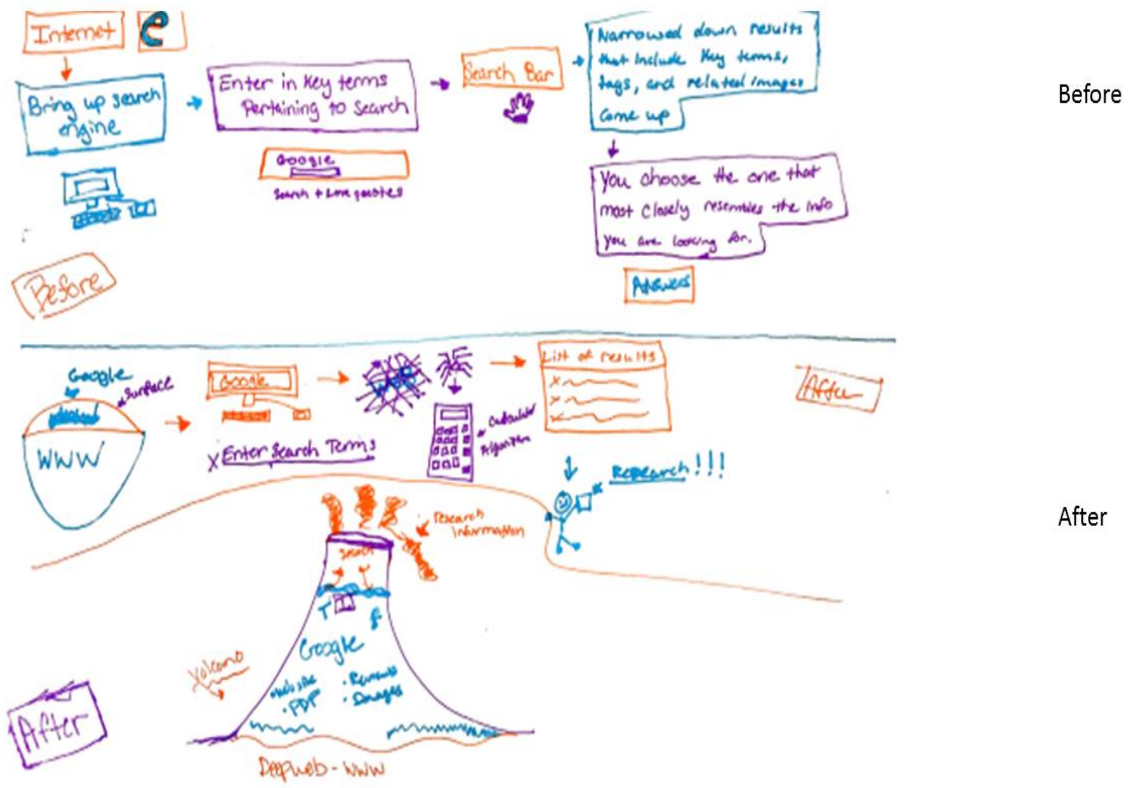 Internet e
Bring up search
engine
Enter in Key terms
Pertaining to Search
Google
Search + Love quotes
Search Bar
Narrowed down results
that include Key terms,
tags, and related images
Come up
You choose the one that
most closely resembles the info
you are looking for.
Answers
Before
Before
Google
Surface
WWW
Google
X Enter Search Terms
WWW
Calculator
Algorithm
List of results
x
x
x
After
Research!!!
After
Research
Information
Search
T f
Google
Volcano
• Website
• PDF
• Reviews
• Images
After
Deepweb - WWW